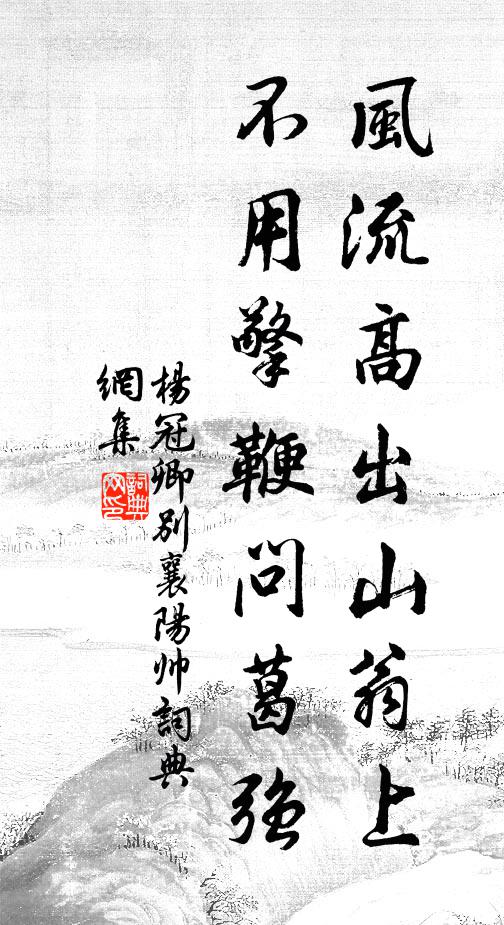 風流高出山翁上
不用擎鞭問葛強
楊冠卿別襄陽帅詞典
網集
詞典
网印